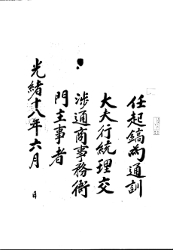 任起鎬為通訓
大夫行統理交
涉通商事務衙
門主事者
光緒十八年六月 日